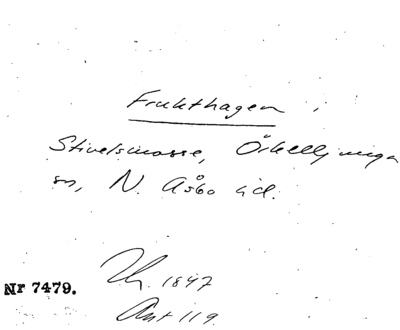 Frukthagen
Stivelsmosse, Örkelljunga
sn, N. Åsbo hd.
Nr 7479.
1847
Ant 119